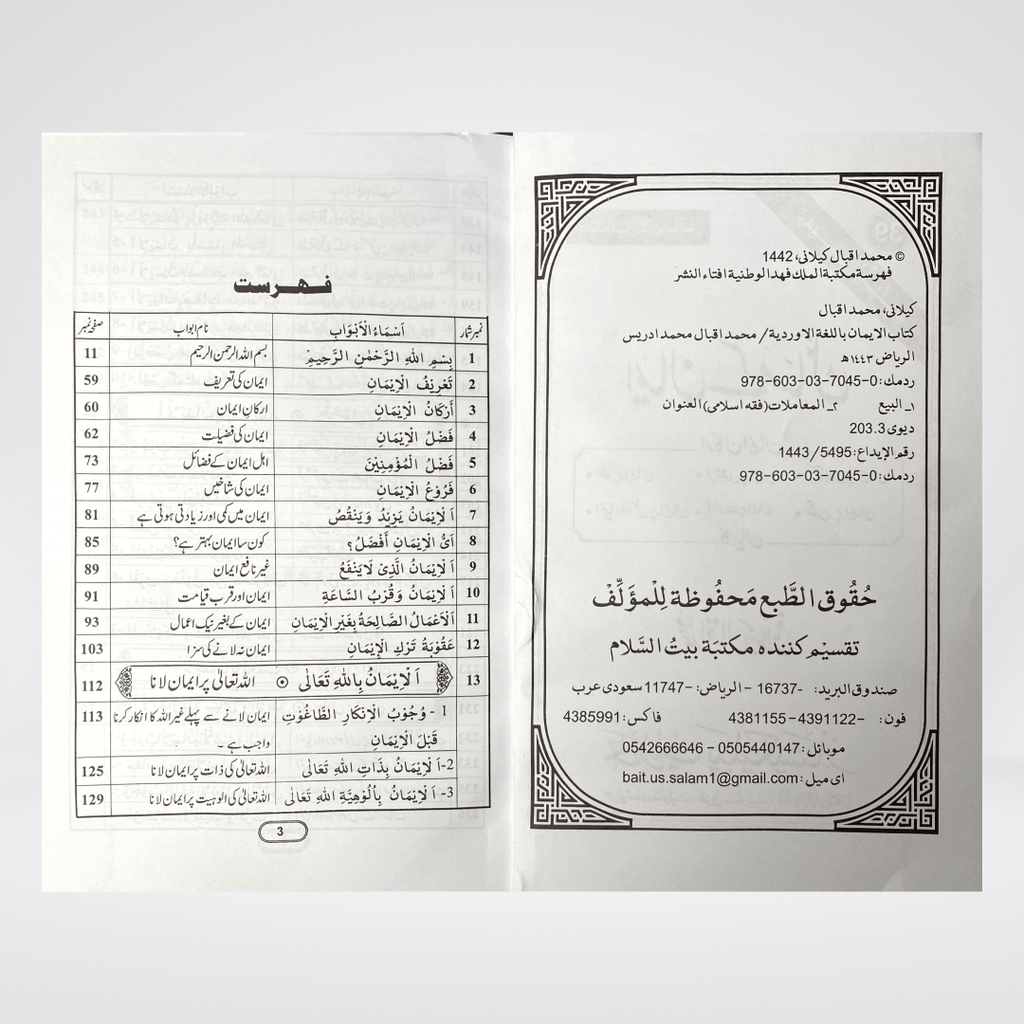 © محمد اقبال كيلانى، 1442
فهرسة مكتبة الملك فهد الوطنية افتاء النشر
كيلانى، محمد اقبال
كتاب الايمان باللغة الاوردية/ محمد اقبال محمد ادريس
الرياض ١٤٤٣ھ
ردمك: 0-7045-03-603-978
١ـ البيع ٢ـ المعاملات (فقه اسلامى) العنوان
ديوى 203.3
رقم الإيداع: 1443/5495
ردمك: 0-7045-03-603-978
حُقُوق الطَّبع مَحفُوظة لِلْمؤَلِّفْ
تقسیم کننده مكتبَة بيتُ السَّلام
صندوق البريد: -16737 - الرياض: -11747 سعودی عرب
فون: -4391122 - 4381155 فاکس: 4385991
موبائل: 0505440147 - 0542666646
ای میل: bait.us.salam1@gmail.com
فہرست
نمبر شمار اَسْمَاءُ الْاَبْوَاب نام ابواب صفحہ نمبر
1 بِسْمِ اللهِ الرَّحْمٰنِ الرَّحِيْمِ بسم اللہ الرحمن الرحیم 11
2 تَعْرِيْفُ الْاِيْمَانِ ایمان کی تعریف 59
3 أَرْكَانُ الْاِيْمَانِ ارکان ایمان 60
4 فَضْلُ الْاِيْمَانِ ایمان کی فضیلت 62
5 فَضْلُ الْمُؤْمِنِيْنَ اہل ایمان کے فضائل 73
6 فَرُوْعُ الْاِيْمَانِ ایمان کی شاخیں 77
7 اَلْاِيْمَانُ يَزِيْدُ وَيَنْقُصُ ایمان میں کمی اور زیادتی ہوتی ہے 81
8 اَىُّ الْاِيْمَانِ اَفْضَلُ؟ کون سا ایمان بہتر ہے؟ 85
9 اَلْاِيْمَانُ الَّذِىْ لَايَنْفَعُ غیر نافع ایمان 89
10 اَلْاِيْمَانُ وَقُرْبُ السَّاعَةِ ایمان اور قرب قیامت 91
11 اَلْاَعْمَالُ الصَّالِحَةُ بِغَيْرِ الْاِيْمَانِ ایمان کے بغیر نیک اعمال 93
12 عَقُوْبَةُ تَرْكِ الْاِيْمَانِ ایمان نہ لانے کی سزا 103
13 اَلْاِيْمَانُ بِاللهِ تَعَالٰى ⊙ اللہ تعالیٰ پر ایمان لانا 112
1 - وُجُوْبُ الْاِنْكَارِ الطَّاغُوْتِ ایمان لانے سے پہلے غیر اللہ کا انکار کرنا 113
قَبْلَ الْاِيْمَانِ واجب ہے۔
2- اَلْاِيْمَانُ بِذَاتِ اللهِ تَعَالٰى اللہ تعالیٰ کی ذات پر ایمان لانا 125
3- اَلْاِيْمَانُ بِاُلُوْهِيَّةِ اللهِ تَعَالٰى اللہ تعالیٰ کی الوہیت پر ایمان لانا 129
3